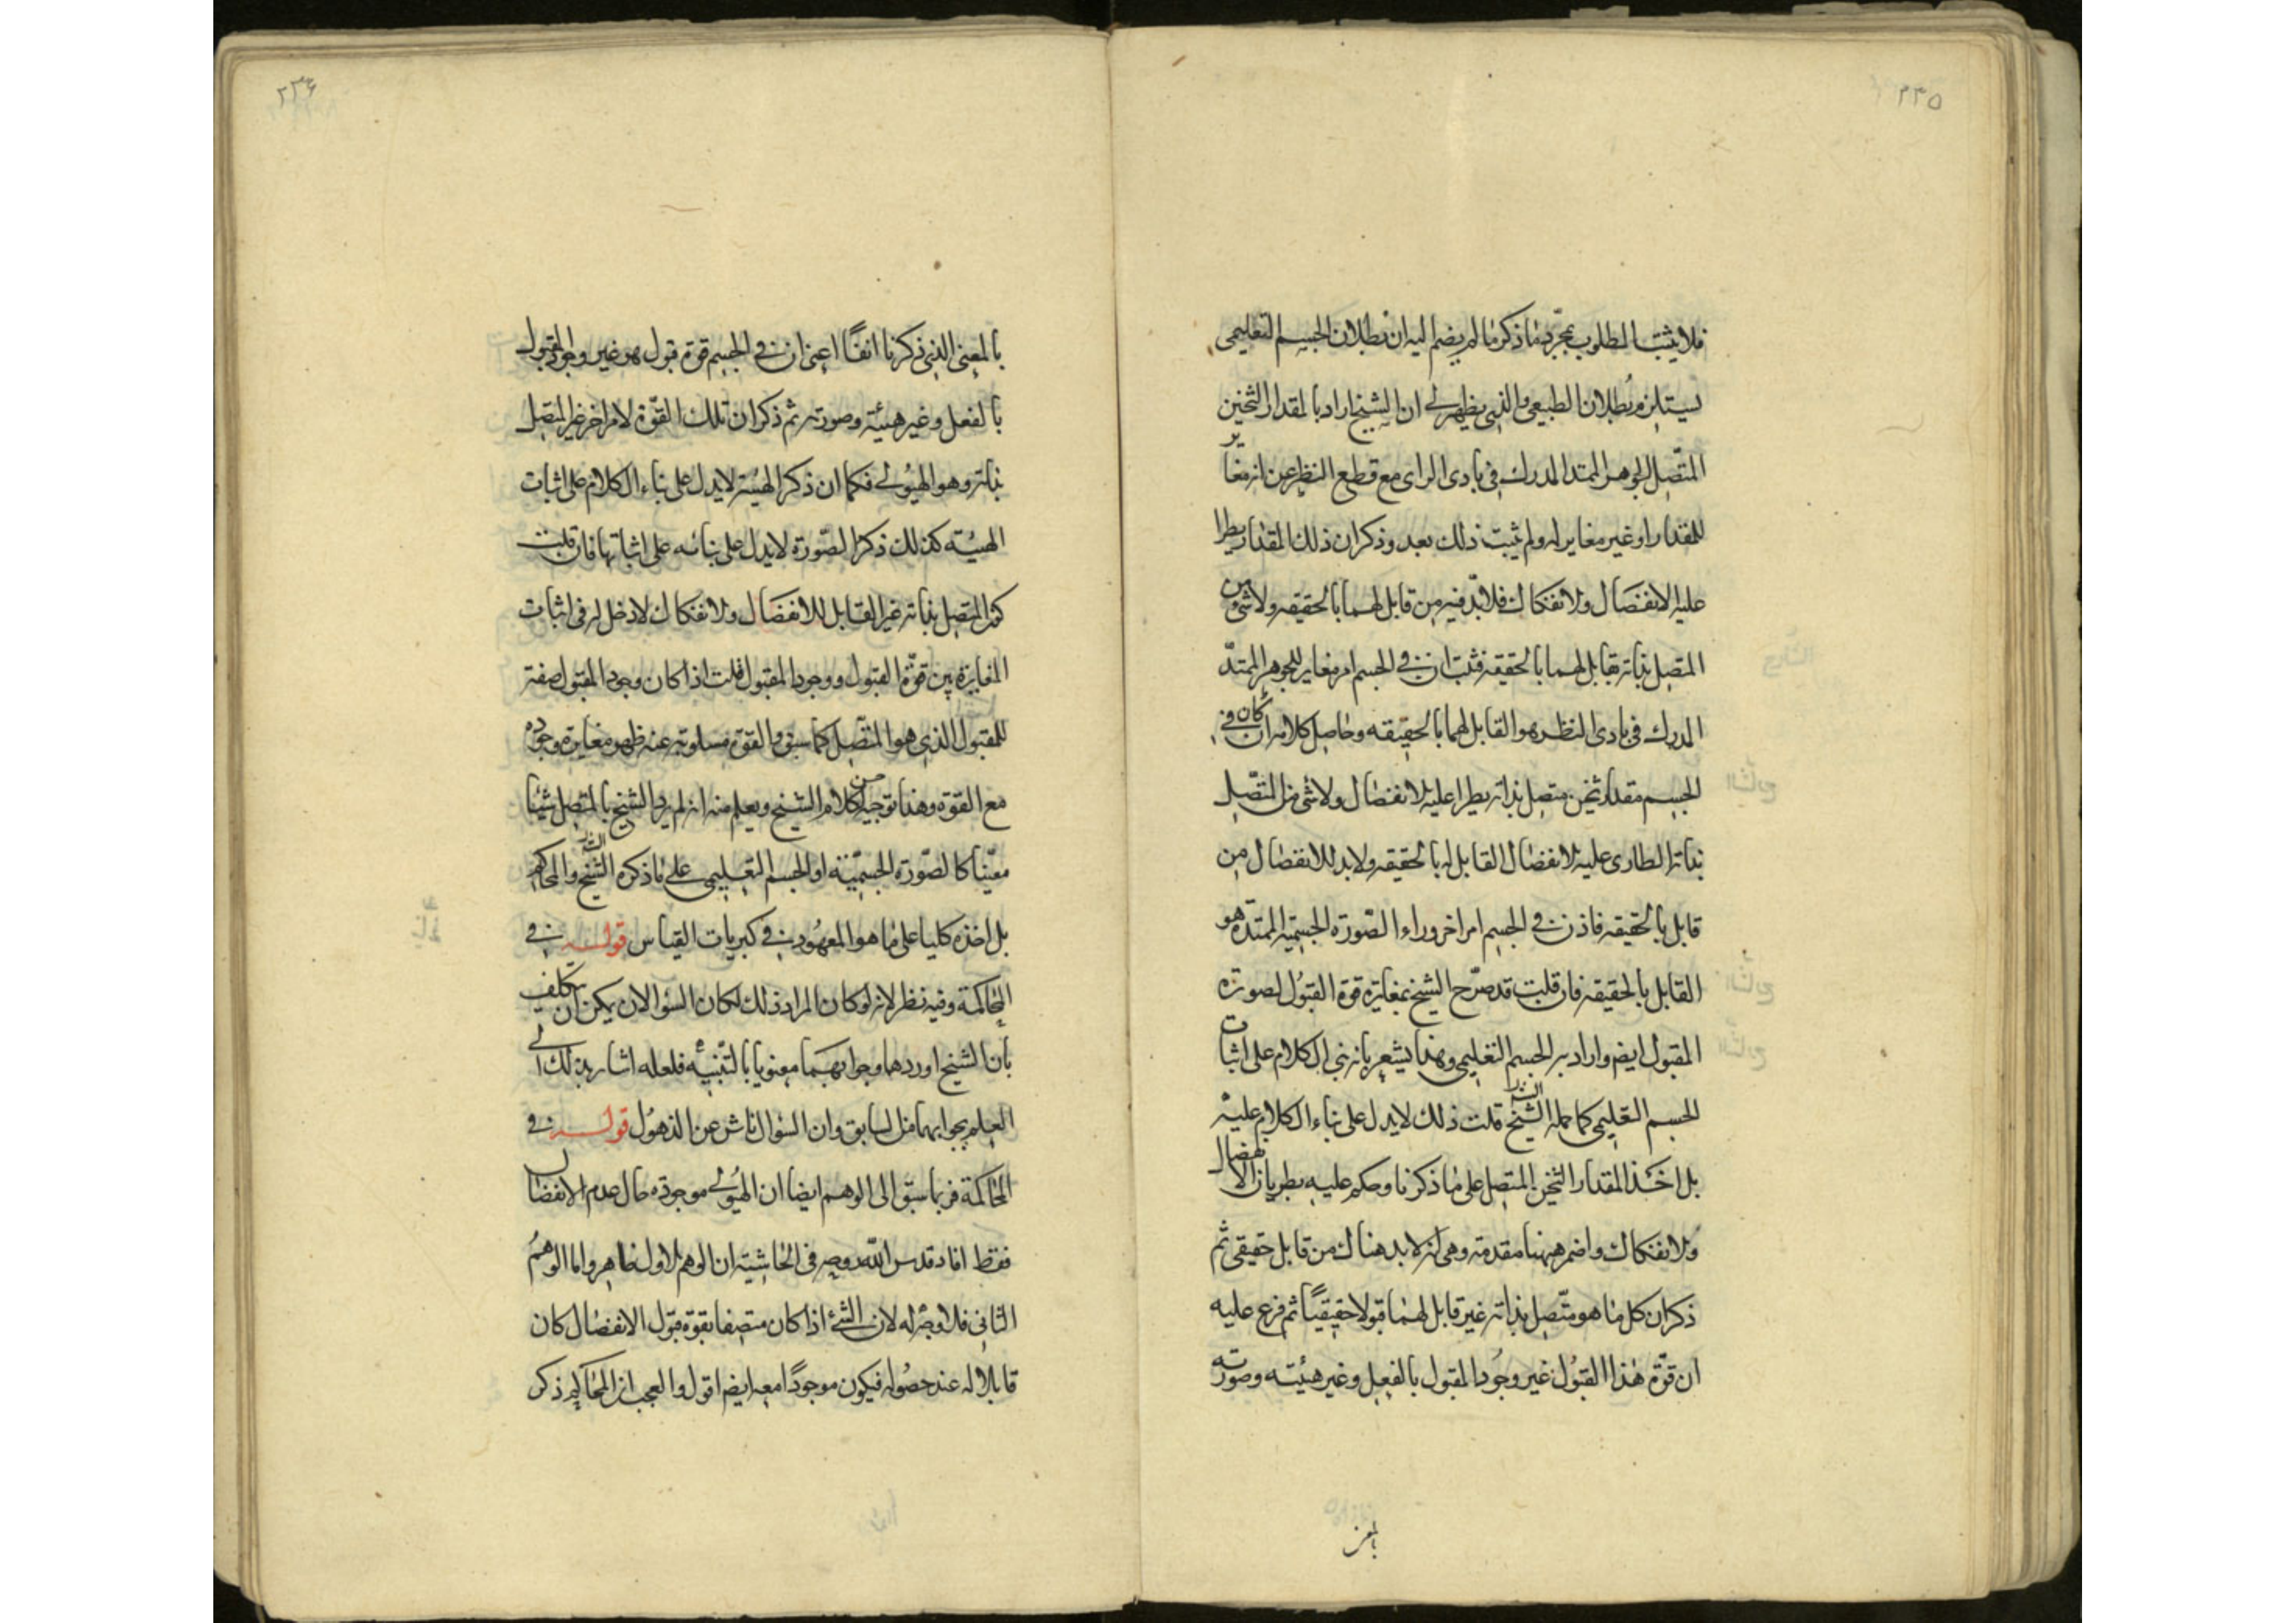 ٢٣٥
فلا يثبت المطلوب بمجرّد ما ذكر ما لم يضم اليه ان بطلان الجسم التعليمى
يستلزم بُطلان الطبيعى والذى يظهر لى ان الشيخ اراد بالمقدار الثخين
المتّصل الجوهر الممتد المدرك فى بادى الراى مع قطع النظر عن انه مغاير
للمقدار او غير مغاير له ولم يثبت ذلك بعد وذكر ان ذلك المقدار يطرا
عليه الانفصال والانفكاك فلا بدّ فيه من قابل لهما بالحقيقه ولا شئ من
المتصل بذاته بقابل لهما بالحقيقه فثبت ان فى الجسم امر مغاير للجوهر الممتدّ
المدرك فى بادى النظر هو القابل لهما بالحقيقه وحاصل كلامه ان كان فى
الجسم مقدار ثخين متصل بذاته يطرا عليه الانفصال ولا شئ من المتّصل
بذاته الطارى عليه الانفصال القابل له بالحقيقه ولا بد للانفصال من
قابل بالحقيقه فاذن فى الجسم امر اخر وراء الصّورة الجسميّه الممتدّه هو
القابل بالحقيقه فان قلت قد صرّح الشيخ بمغايرة قوة القبُول لصورة
المقبول ايضم واراد به الجسم التعليمى وهذا يشعر بانه بنى الكلام على اثبات
الجسم التعليمى كما حمله الشيخ الشه قلت ذلك لا يدل على بناء الكلام عليه
بل اخذ المقدار الثخين المتصل على ما ذكرنا وحكم عليه بطريان الانفصال
والانفكاك واضم ههنا مقدمة وهى انه لا بد هناك من قابل حقيقى ثم
ذكر ان كل ما هو متّصل بذاته غير قابل لهما قبولا حقيقيًا ثم فرع عليه
ان قوّة هٰذا القبُول غير وجُود المقبول بالفعل وغير هيئته وصورته
بالمعنى
٢٣۶
بالمعنى الذى ذكرنا انفًا اعنى ان فى الجسم قوة قبول هو غير وجود المقبول
بالفعل وغير هيئته وصورته ثم ذكر ان تلك القوّة لامر اخر غير المتصل
بذاته وهو الهيُولى فكما ان ذكر الهيئة لا يدل على بناء الكلام على اثبات
الهيئه كذلك ذكر الصّورة لا يدل على بنائه على اثباتها فان قلت
كون المتصل بذاته غير القابل للانفصال والانفكاك لا دخل له فى اثبات
المغايرة بين قوّة القبول ووجود المقبول قلت اذا كان وجود المقبول صفة
للمقبول الذى هو المتّصل كما سبق والقوة مسلوبة عنه ظهر مغايرة وجوده
مع القوة وهذا توجيه حسن لكلام الشيخ ويعلم منه انه لم يرد الشيخ بالمتصل شيئا
معيّنا كالصّورة الجسميّة او الجسم التعليمى على ما ذكره الشيخ الشه والمحاكم
بل اخذه كليا على ما هو المعهُود فى كبريات القياس قوله فى
المحاكمة وفيه نظر لانه لو كان المراد ذلك لكان السؤال الان يمكن ان يتكلف
بان الشيخ اوردهما وجوابهما معنويا بالتّنبيه فلعله اشار بذلك الى
العلم بجوابهما من السابق وان السؤال ناش عن الذهُول قوله فى
المحاكمة فربما سبق الى الوهم ايضا ان الهيُولى موجوده حال عدم الانفصال
فقط افاد قدس اللّه روحه فى الحاشية ان الوهم الاول ظاهر واما الوهمُ
الثانى فلا وجه له لان الشئ اذا كان متصفا بقوة قبول الانفصال كان
قابلا له عند حصُوله فيكون موجودًا معه ايضم اقول والعجب ان المحاكم ذكر